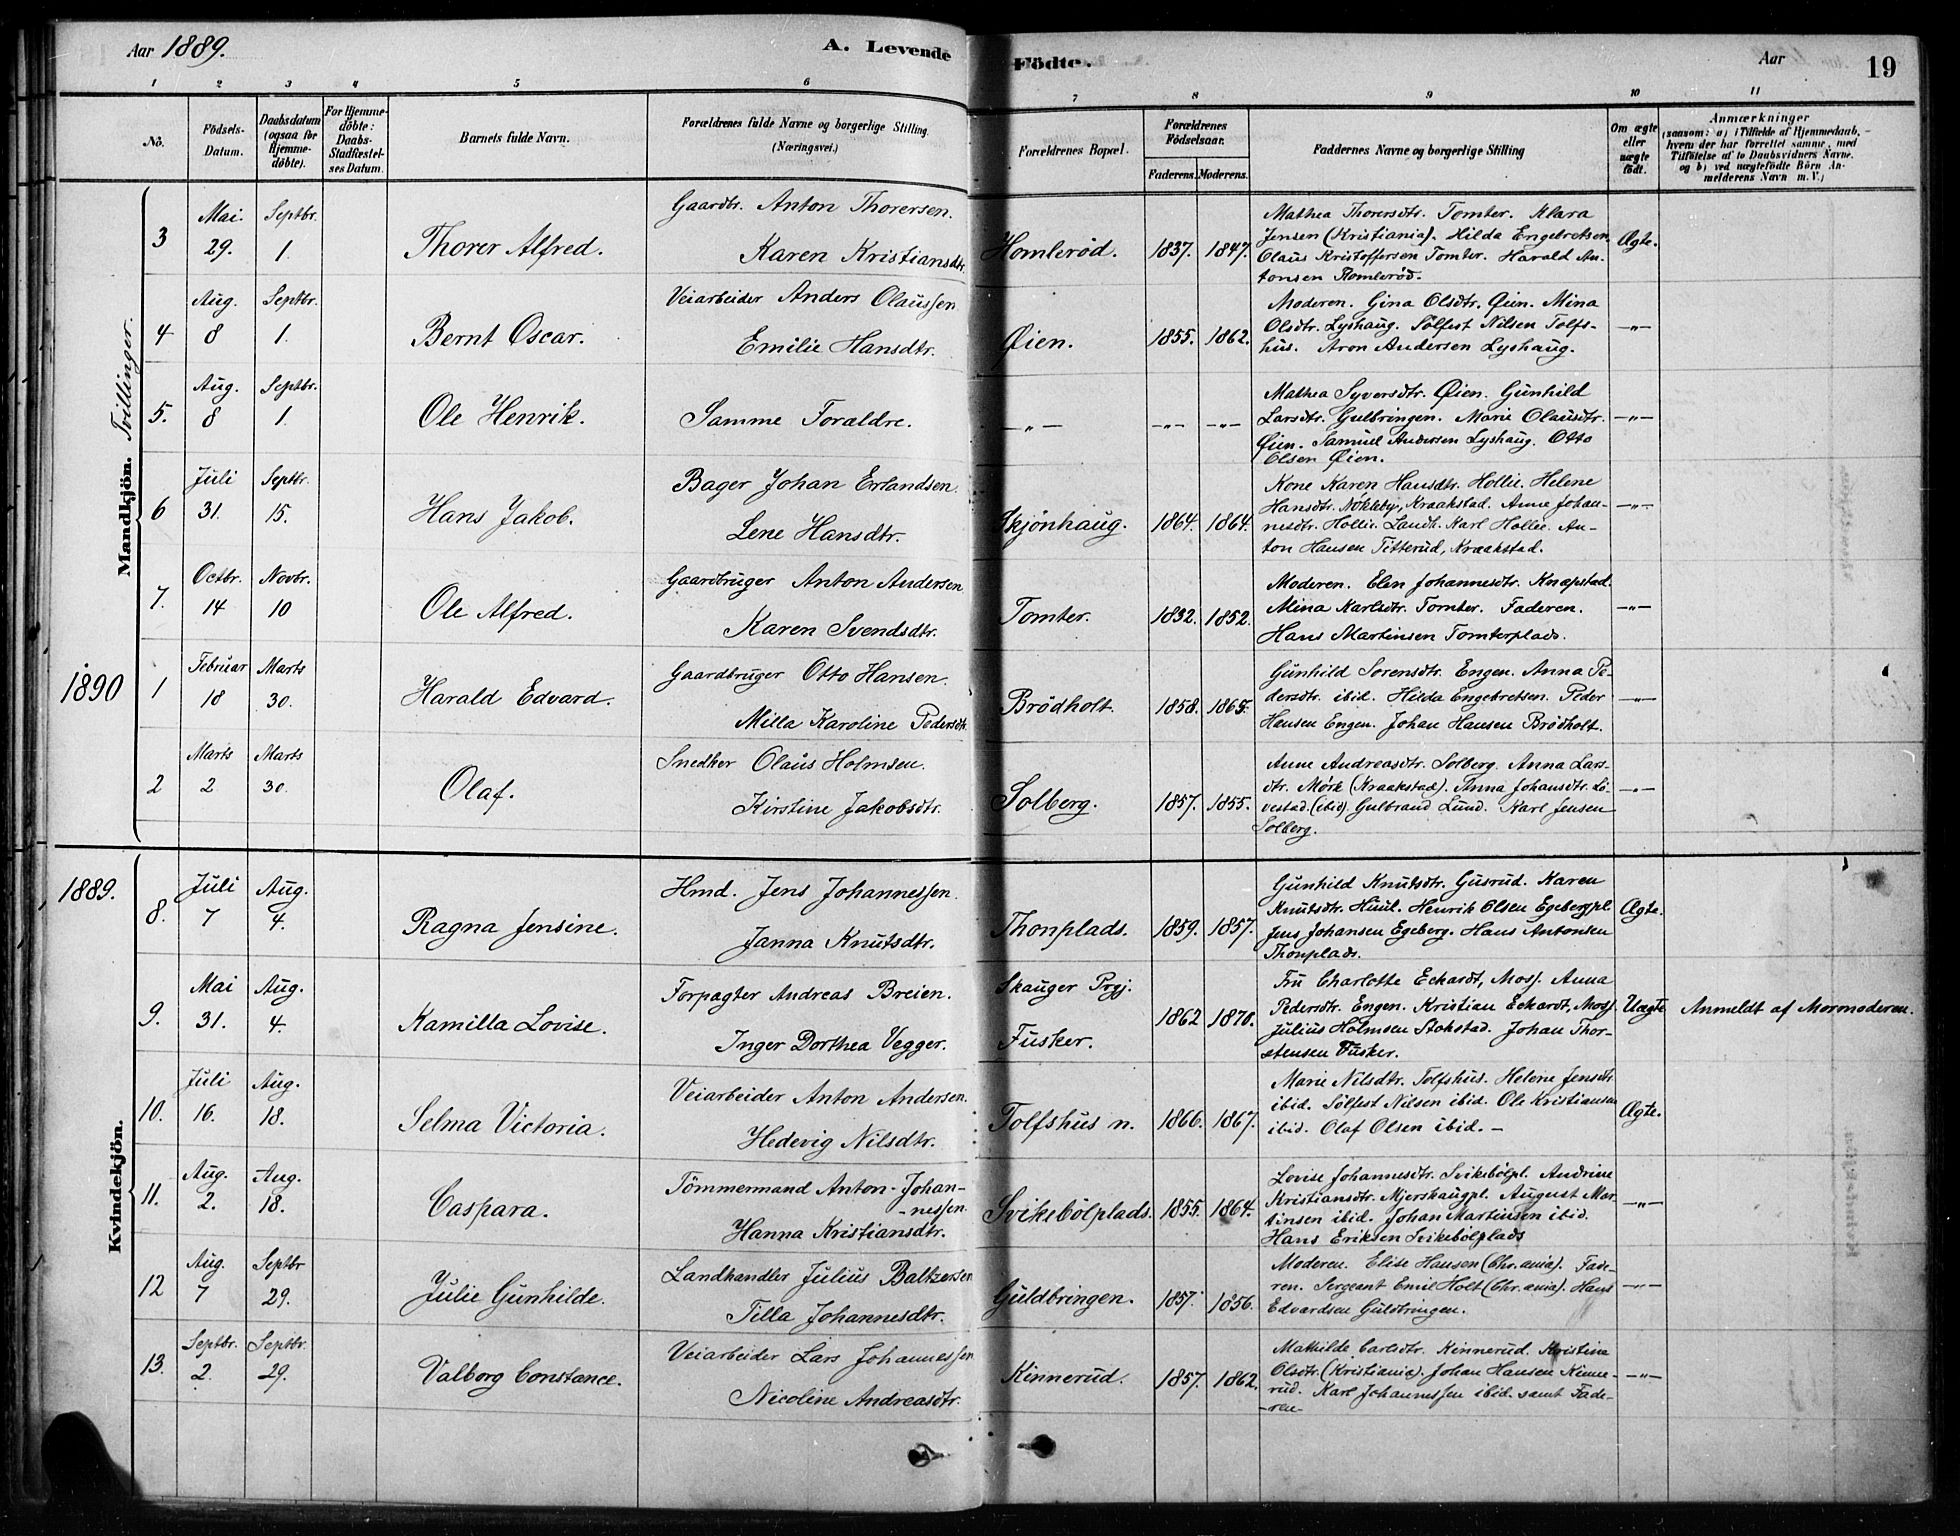 Aar 1889.
A. Levende
Födte.
Aar
19
1 2 3 4 5 6 7 8 9 10 11
No.
Födsels-
Datum.
Daabsdatum
(ogsaa for
Hjemme-
döbte).
For Hjemme-
döbte:
Daabs-
Stadfæstel-
ses Datum.
Barnets fulde Navn.
Forældrenes fulde Navne og borgerlige Stilling
(Næringsvei.)
Forældrenes Bopæl.
Forældrenes
Födselsaar.
Faderens. Moderens.
Faddernes Navne og borgerlige Stilling
Om ægte
eller
uægte
födt.
Anmærkninger
(saasom: a) i Tilfælde af Hjemmedaab,
hvem der har forrettet samme, med
Tilföielse af to Daabsvidners Navne,
og b) ved uægtefödte Börn An-
melderens Navn m. V.)
Mandkjön. Tvillinger.
3
Mai.
29.
Septbr.
1.
Thorer Alfred.
Gaardbr. Anton Thorersen.
Karen Kristiansdtr.
Homleröd.
1837. 1847.
Mathea Thorersdtr. Tomter. Klara
Jensen (Kristiania). Hilda Engebretsen
Olaus Kristoffersen Tomter. Harald An-
tonsen Homleröd.
Ægte.
4
Aug.
8
Septbr.
1.
Bernt Oscar.
Veiarbeider Anders Olaussen
Emilie Hansdtr.
Øien.
1855. 1862.
Moderen. Gina Olsdtr. Øien. Mina
Olsdtr. Lyshaug. Sölfest Nilsen Tolfs-
hus. Aron Andersen Lyshaug.
-"-
5.
Aug.
8
Septbr.
1.
Ole Henrik.
Samme Foraldre.
-"- -"- -"-
Mathea Syversdtr. Øien. Gunhild
Larsdtr. Gulbringen. Marie Olausdtr.
Øien. Samuel Andersen Lyshaug. Otto
Olsen Øien.
-"-
6
Juli
31.
Septbr.
15.
Hans Jakob.
Bager Johan Erlandsen.
Lene Hansdtr.
Skjönhaug.
1864. 1864.
Kone Karen Hansdtr. Hollie. Helene
Hansdtr. Nökleby, Kraakstad. Anne Johan-
nesdtr. Hollie. Landh. Karl Hollie. An-
ton Hansen Titterud, Kraakstad.
-"-
7.
Octbr.
14
Novbr.
10
Ole Alfred.
Gaardbruger Anton Andersen
Karen Svendsdtr.
Tomter.
1832. 1852.
Moderen. Elen Johannesdtr. Knapstad.
Mina Karlsdtr. Tomter. Faderen.
Hans Martinsen Tomterplads.
-"-
1890
1
Februar
18
Marts
30.
Harald Edvard.
Gaardbruger Otto Hansen.
Milla Karoline Pedersdtr.
Brödholt.
1858. 1865.
Gunhild Sorensdtr. Engen. Anna Pe-
dersdtr. ibid. Hilda Engebretsen. Peder
Hansen Engen. Johan Hansen Brödholt.
-"-
2
Marts
2
Marts
30.
Olaf.
Snedker Olaus Holmsen.
Kirstine Jakobsdtr.
Solberg.
1857. 1855.
Anne Andreasdtr. Solberg. Anna Lars-
dtr. Mörk (Kraakstad). Anna Johansdtr. Lö-
vestad (ibid). Gulbrand Lund. Karl Jensen
Solberg.
-"-
1889.
Kvindekjön.
8.
Juli
7
Aug.
4.
Ragna Jensine.
Hmd. Jens Johannessen.
Janna Knutsdtr.
Thonplads.
1859. 1857.
Gunhild Knutsdtr. Gusrud. Karen
Knutsdtr. Huul. Henrik Olsen Egebergpl.
Jens Johansen Egeberg. Hans Antonsen
Thonplads.
Ægte.
9.
Mai
31.
Aug.
4.
Kamilla Lovise.
Forpagter Andreas Breien.
Inger Dorthea Vegger.
Skauger Prgj.
Fusker.
1862 1870.
Fru Charlotte Eckardt, Moss. Anna
Pedersdtr. Engen. Kristian Eckardt, Moss.
Julius Holmsen Stokstad. Johan Thor-
stensen Fusker.
Uægte
Anmeldt af Mormoderen.
10.
Juli
16.
Aug.
18.
Selma Victoria.
Veiarbeider Anton Andersen.
Hedevig Nilsdtr.
Tolfshus n.
1866. 1867.
Marie Nilsdtr. Tolfshus. Helene Jensdtr.
ibid. Sölfest Nilsen ibid. Ole Kristiansen
ibid. Olaf Olsen ibid. -
Ægte.
11.
Aug.
2.
Aug.
18.
Caspara.
Tömmermand Anton Johan-
-nessen.
Hanna Kristiansdtr.
Svikebölplads.
1855. 1864.
Lovise Johannesdtr. Svikebölpl. Andrine
Kristiansdtr. Mjerskaugpl. August Mar-
tinsen ibid. Johan Martinsen ibid.
Hans Eriksen Svikebölplads
-"-
12
Aug.
7
Septbr
29.
Julie Gunhilde.
Landhandler Julius Baltzersen
Tilla Johannesdtr.
Guldbringen.
1857. 1856.
Moderen. Elise Hansen (Chr.ania). Fade-
ren. Sergeant Emil Holt (Chr.ania). Hans
Edvardsen Guldbringen.
-"-
13.
Septbr.
2.
Septbr.
29.
Valborg Constance.
Veiarbeider Lars Johannessen
Nicoline Andreasdtr.
Kinnerud.
1857. 1862.
Mathilde Carlsdtr. Kinnerud. Kristine
Olsdtr. (Kristiania). Johan Hansen Kinne-
rud. Karl Johannessen ibid. samt Fade-
-ren-
-"-